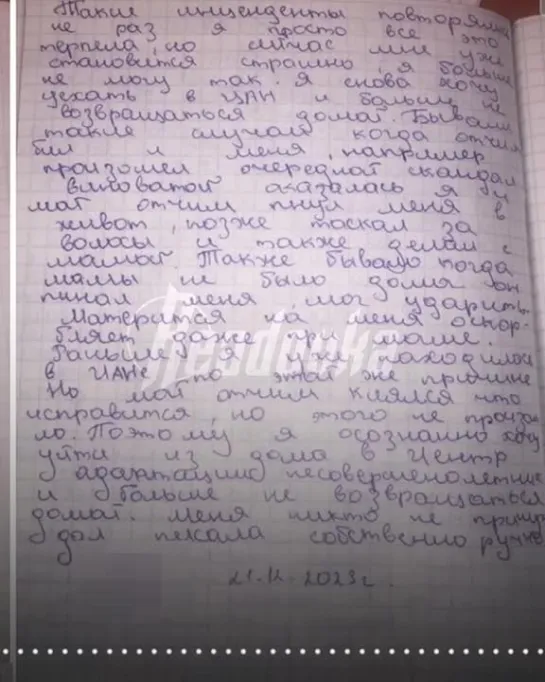 Такие инциденты повторялись
не раз я просто все это
терпела, но сейчас мне уже
становится страшно, я больше
не могу так. Я снова хочу
уехать в ЦАН и больше не
возвращаться домой. Бывали
такие случаи когда отчим
бил и меня, например
произошел очередной скандал
виноватой оказалась я и
мой отчим пнул меня в
живот, позже таскал за
волосы и также делал с
мамой. Также бывало когда
мамы не было дома он
пинал меня, мог ударить.
Матерится на меня оскор-
бляет даже при маме.
Раньше я уже находилась
в ЦАНе по этой же причине
Но мой отчим клялся что
исправится, но этого не произош
ло. Поэтому я осознанно хочу
уйти из дома в Центр
адаптации несовершеннолетних
и больше не возвращаться
домой. Меня никто не принуж
дал писала собственно ручно
21.12.2023г.
Readovka